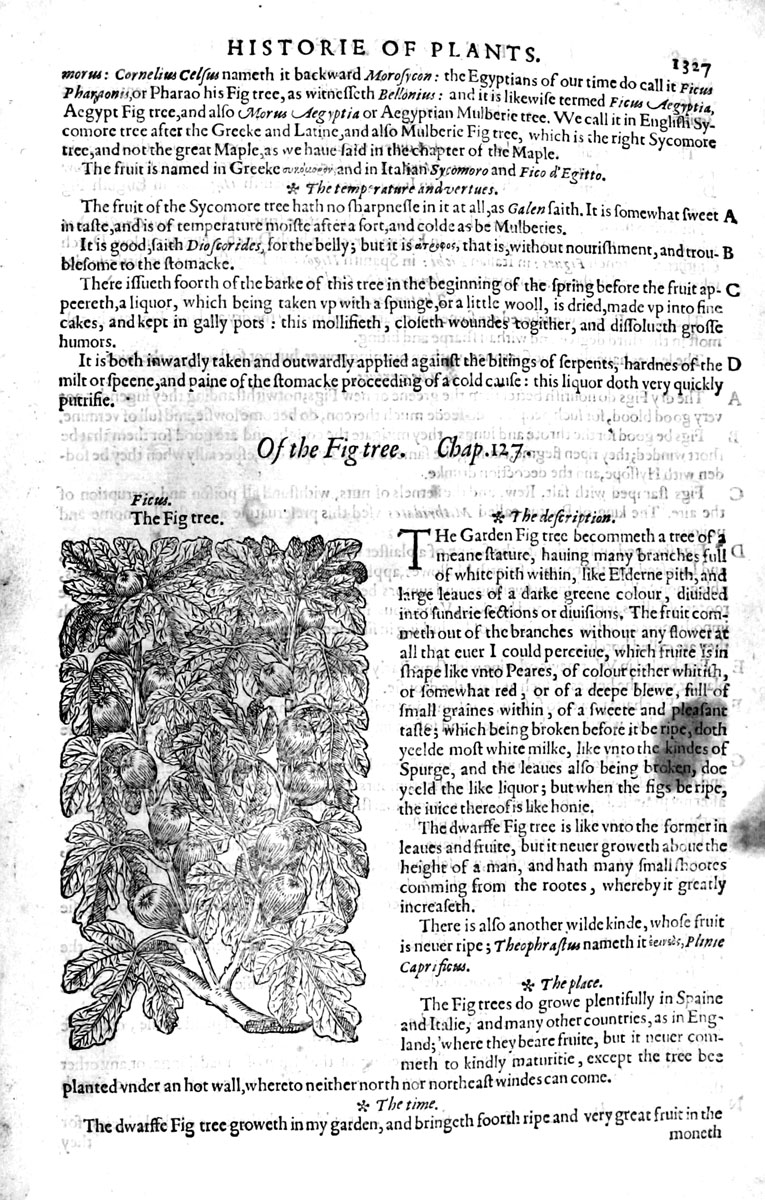 HISTORIE OF PLANTS.
1327
morus: Cornelius Celſus nameth it backward Moroſycon: the Egyptians of our time do call it Ficus
Pharaonis, or Pharao his Fig tree, as witneſſeth Bellonius: and it is likewiſe termed Ficus Aegyptia,
Aegypt Fig tree, and alſo Morus Aegyptia or Aegyptian Mulberie tree. We call it in Engliſh Sy-
comore tree after the Greeke and Latine, and alſo Mulberie Fig tree, which is the right Sycomore
tree, and not the great Maple, as we haue ſaid in the chapter of the Maple.
The fruit is named in Greeke συκόμορον, and in Italian Sycomoro and Fico d'Egitto.
✻ The temperature and vertues.
The fruit of the Sycomore tree hath no ſharpneſſe in it at all, as Galen ſaith. It is ſomewhat ſweet A
in taſte, and is of temperature moiſte after a ſort, and colde as be Mulberies.
It is good, ſaith Dioſcorides, for the belly; but it is ἄτροφος, that is, without nouriſhment, and trou- B
bleſome to the ſtomacke.
There iſſueth foorth of the barke of this tree in the beginning of the ſpring before the fruit ap- C
peereth, a liquor, which being taken vp with a ſpunge, or a little wooll, is dried, made vp into fine
cakes, and kept in gally pots: this mollifieth, cloſeth woundes togither, and diſſolueth groſſe
humors.
It is both inwardly taken and outwardly applied againſt the bitings of ſerpents, hardnes of the D
milt or ſpeene, and paine of the ſtomacke proceeding of a cold cauſe: this liquor doth very quickly
putrifie.
Of the Fig tree. Chap. 127.
Ficus.
The Fig tree.
✻ The deſcription.
THe Garden Fig tree becommeth a tree of a
meane ſtature, hauing many branches full
of white pith within, like Elderne pith, and
large leaues of a darke greene colour, diuided
into ſundrie ſections or diuiſions. The fruit com-
meth out of the branches without any flower at
all that euer I could perceiue, which fruite is in
ſhape like vnto Peares, of colour either whitiſh,
or ſomewhat red, or of a deepe blewe, full of
ſmall graines within, of a ſweete and pleaſant
taſte; which being broken before it be ripe, doth
yeelde moſt white milke, like vnto the kindes of
Spurge, and the leaues alſo being broken, doe
yeeld the like liquor; but when the figs be ripe,
the iuice thereof is like honie.
The dwarffe Fig tree is like vnto the former in
leaues and fruite, but it neuer groweth aboue the
height of a man, and hath many ſmall ſhootes
comming from the rootes, whereby it greatly
increaſeth.
There is alſo another wilde kinde, whoſe fruit
is neuer ripe; Theophraſtus nameth it ἐρινεὸς, Plinie
Caprificus.
✻ The place.
The Fig trees do growe plentifully in Spaine
and Italie, and many other countries, as in Eng-
land; where they beare fruite, but it neuer com-
meth to kindly maturitie, except the tree bee
planted vnder an hot wall, whereto neither north nor northeaſt windes can come.
✻ The time.
The dwarffe Fig tree groweth in my garden, and bringeth foorth ripe and very great fruit in the
moneth